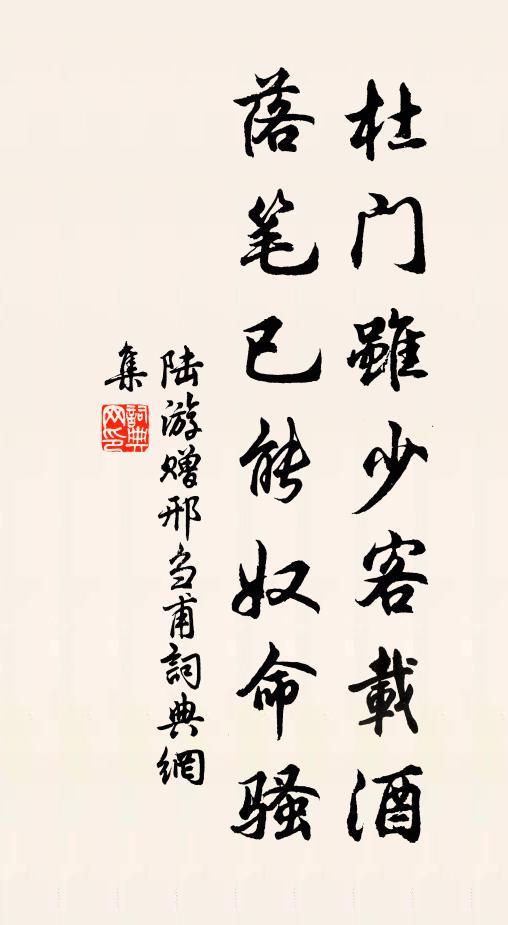 杜门雖少客載酒
落笔已能奴命骚
陆游赠邢刍甫詞典網
集
詞典网印